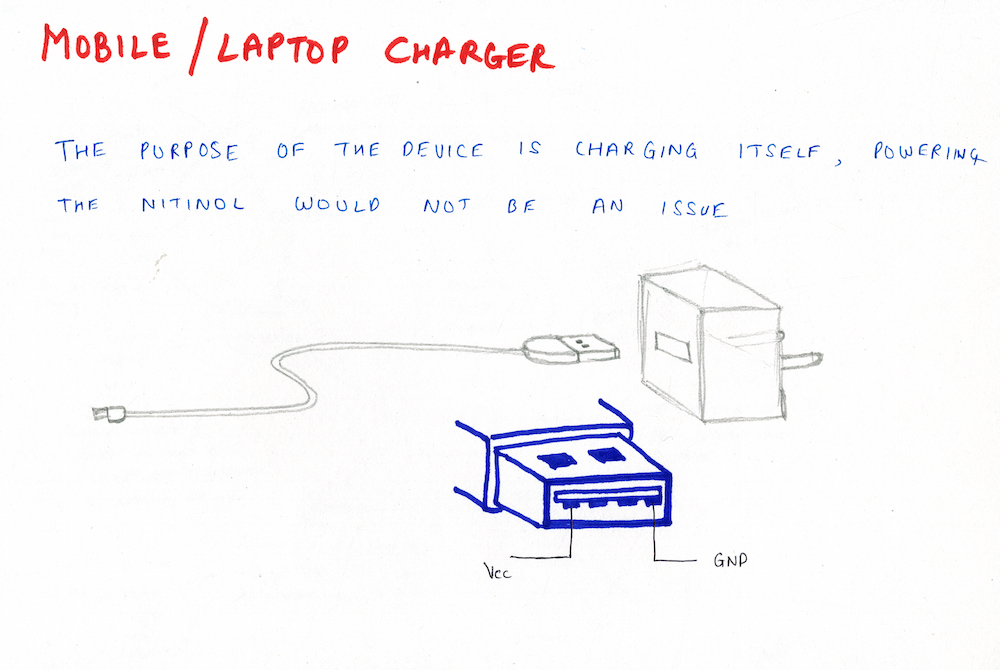 MOBILE / LAPTOP CHARGER
THE PURPOSE OF THE DEVICE IS CHARGING ITSELF, POWERING
THE NITINOL WOULD NOT BE AN ISSUE
Vcc
GND